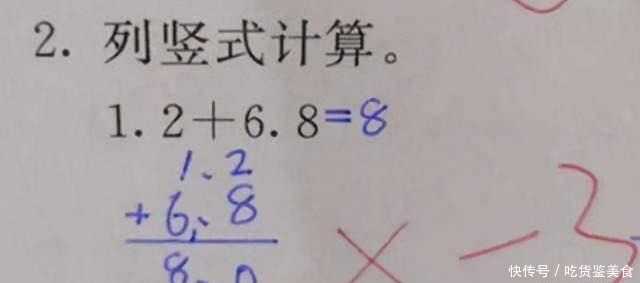 2. 列竖式计算。
1.2+6.8=8
1.2
+6.8
8.0
× -3
快传号/吃货鉴美食